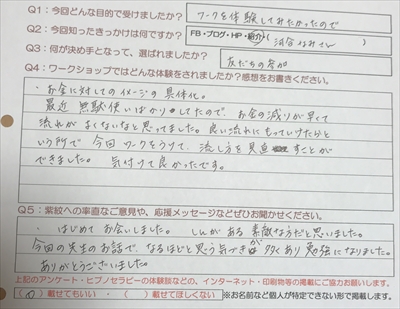 Q1：今回どんな目的で受けましたか？ ワークを体験してみたかったので
Q2：今回知ったきっかけは何ですか？ FB・ブログ・HP・紹介（河合なみさん）
Q3：何が決め手となって、選ばれましたか？ 友だちの紹介
Q4：ワークショップではどんな体験をされましたか？感想をお書きください。
・お金に対してのイメージの具体化。
最近 無駄使いばかりしてたので、お金の減りが早くて
流れがよくないなと思ってました。良い流れにもっていけたらと
いう所で 今回 ワークをうけて、流し方を見直すことが
できました。 気付けて良かったです。
Q5：紫紋への率直なご意見や、応援メッセージなどぜひお聞かせください。
・はじめてお会いしました。しんがある素敵なうだと思いました。
今回の先生のお話で、なるほどと思う気づきが多くあり勉強になりました。
ありがとうございました。
上記のアンケート・ヒプノセラピーの体験談などの、インターネット・印刷物等の掲載にご協力お願いします。
（の）載せてもいい ・（ ）載せてほしくない ※お名前など個人が特定できない形で掲載します。